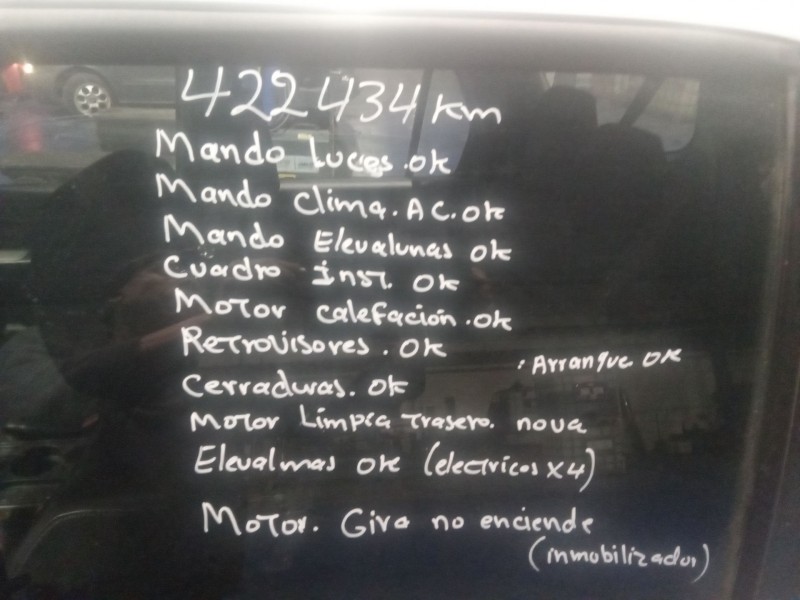 422 434 km
Mando Luces. ok
Mando Clima. AC. ok
Mando Elevalunas ok
Cuadro inst. ok
Motor calefación. ok
Retrovisores. ok
: Arranque ok
Cerraduras. ok
Motor Limpia Trasero. nova
Elevalunas ok (electricos x4)
Motor. Gira no enciende
(inmobilizador)